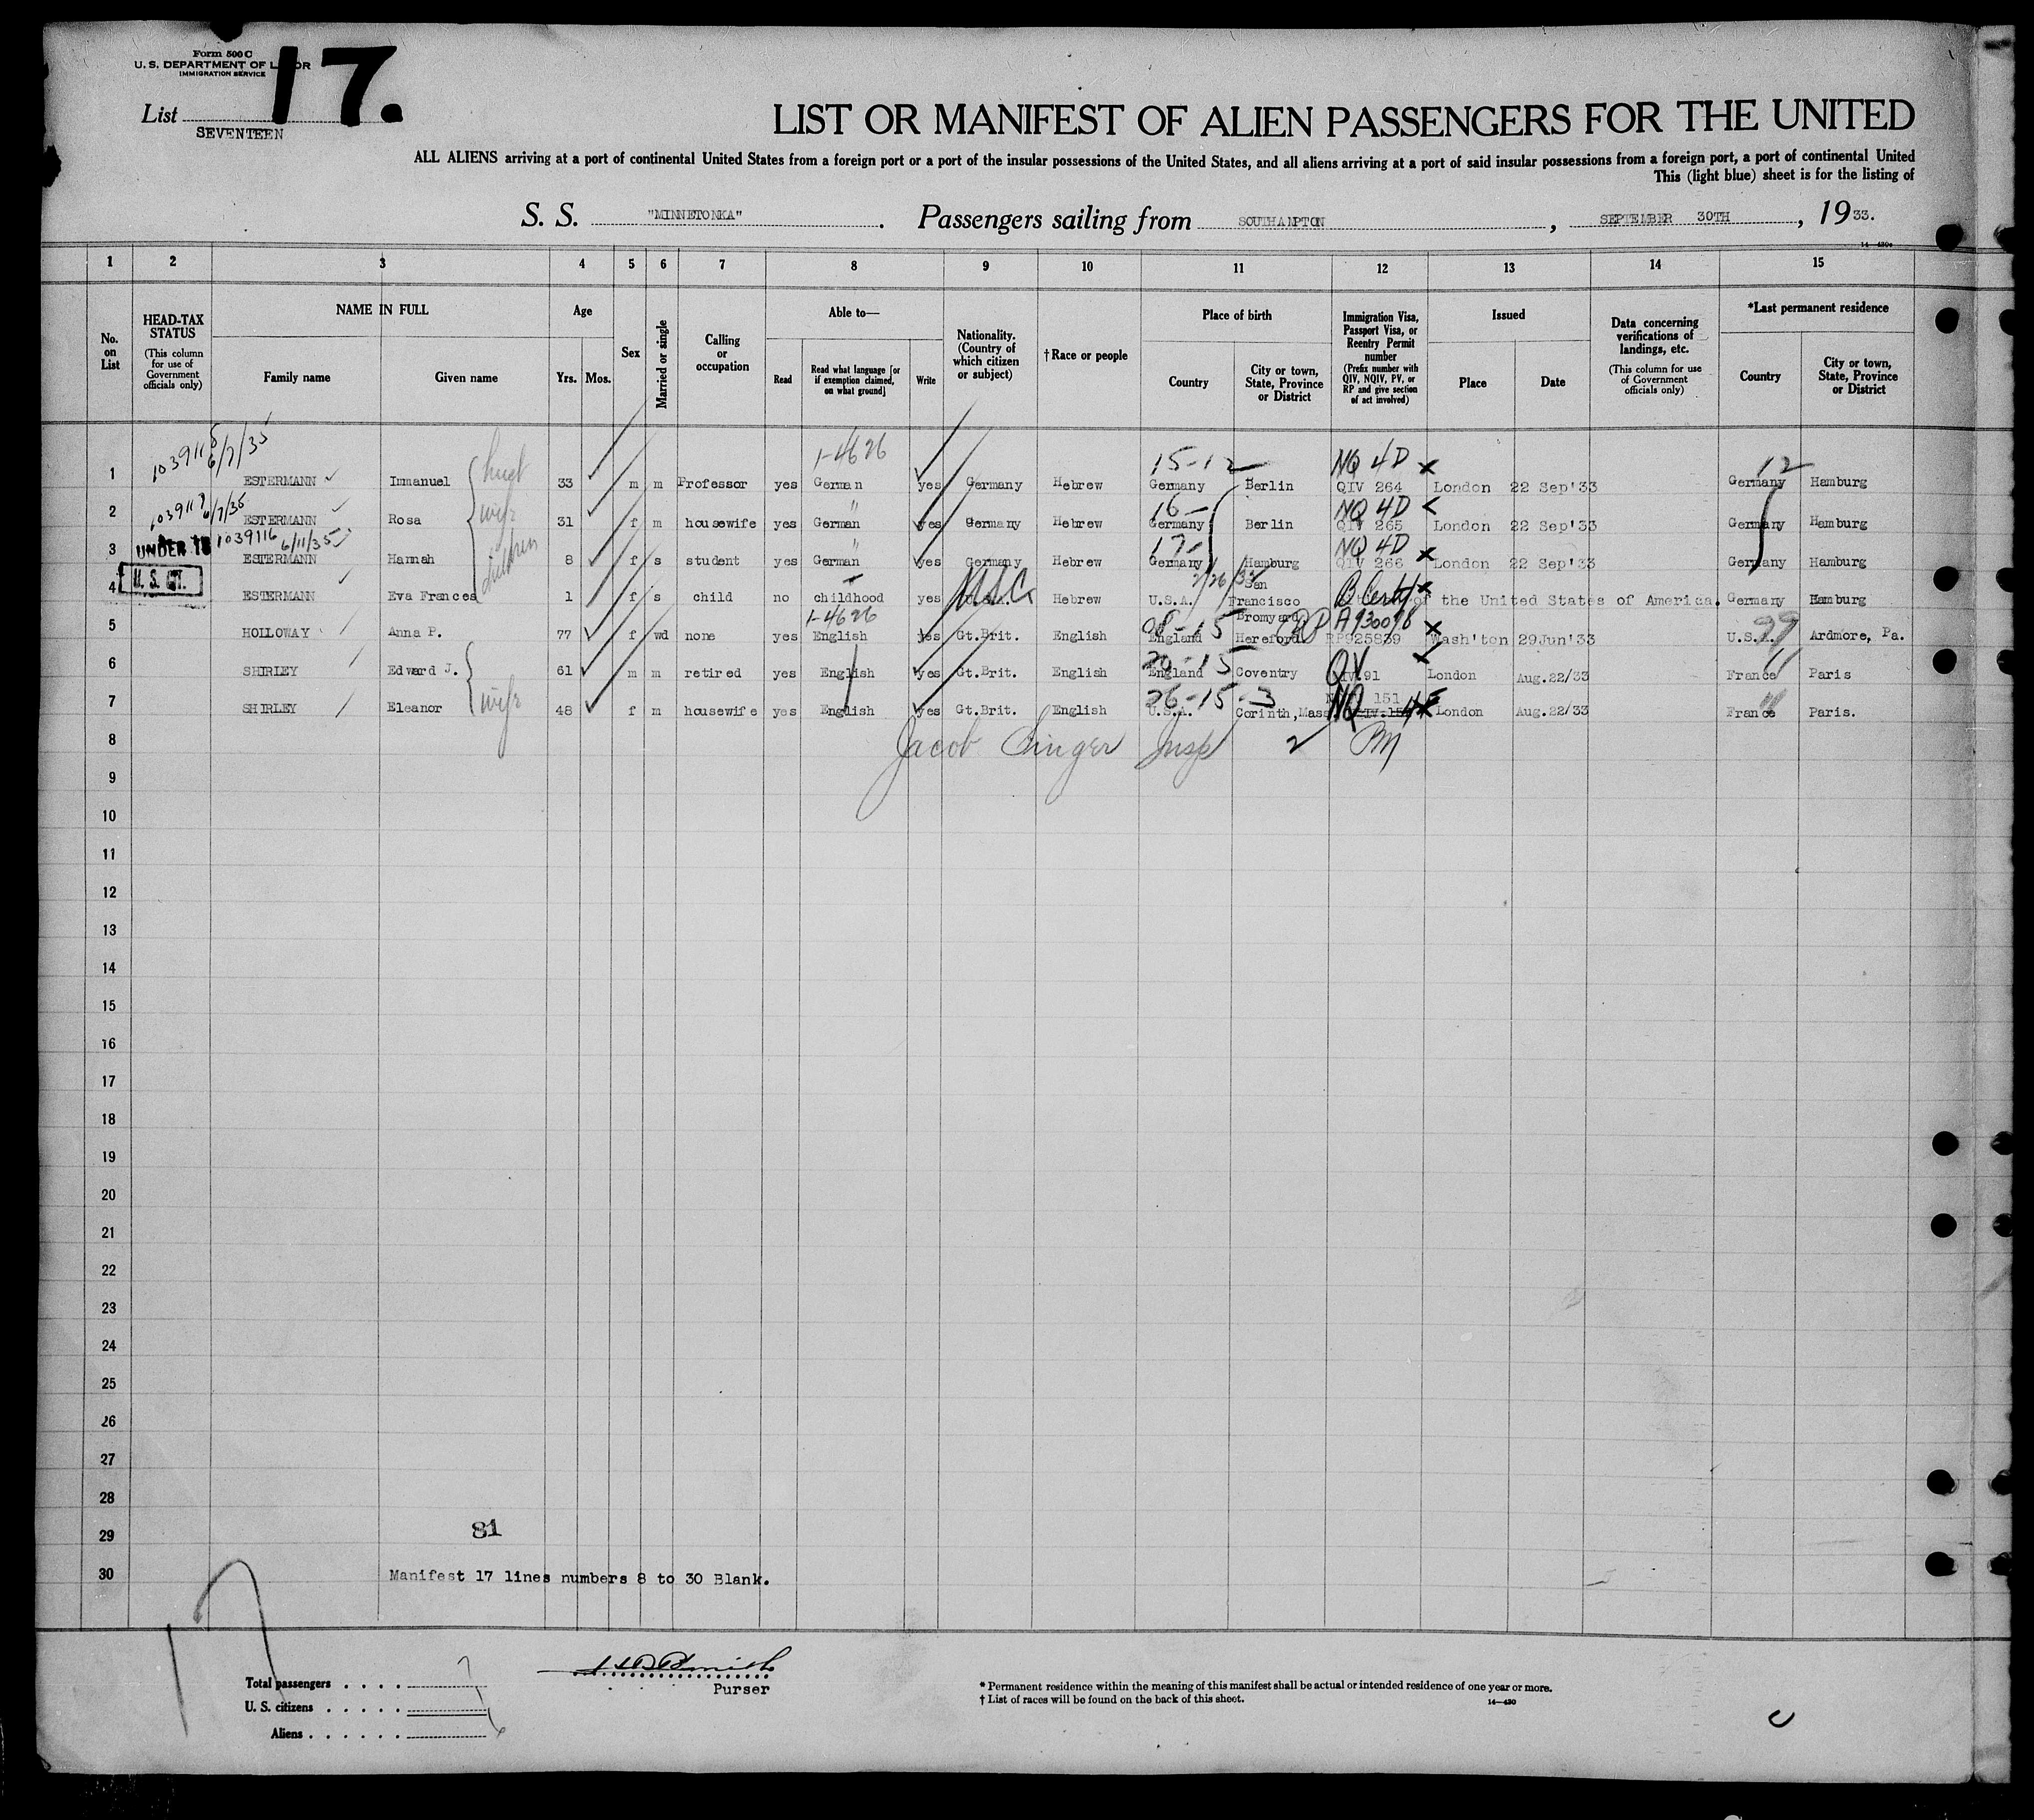 Form 500 C
U. S. DEPARTMENT OF LABOR
IMMIGRATION SERVICE
17.
List
SEVENTEEN
LIST OR MANIFEST OF ALIEN PASSENGERS FOR THE UNITED
ALL ALIENS arriving at a port of continental United States from a foreign port or a port of the insular possessions of the United States, and all aliens arriving at a port of said insular possessions from a foreign port, a port of continental United
This (light blue) sheet is for the listing of
S. S. "MINNETONKA". Passengers sailing from SOUTHAMPTON, SEPTEMBER 30TH, 1933.
14—430a
1 2 3 4 5 6 7 8 9 10 11 12 13 14 15
No. on List
HEAD-TAX STATUS
(This column for use of Government officials only)
NAME IN FULL
Family name
Given name
Age
Yrs. Mos.
Sex
Married or single
Calling or occupation
Able to—
Read
Read what language [or if exemption claimed, on what ground]
Write
Nationality. (Country of which citizen or subject)
†Race or people
Place of birth
Country
City or town, State, Province or District
Immigration Visa, Passport Visa, or Reentry Permit number
(Prefix number with QIV, NQIV, PV, or RP and give section of act involved)
Issued
Place
Date
Data concerning verifications of landings, etc.
(This column for use of Government officials only)
*Last permanent residence
Country
City or town, State, Province or District
6/7/35 1-4626 15-12 NQ 4D 12
1 ESTERMANN Immanuel 33 m m Professor yes German yes Germany Hebrew Germany Berlin QIV 264 London 22 Sep'33 Germany Hamburg
6/7/35 wife " 16- NQ 4D
2 ESTERMANN Rosa 31 f m housewife yes German yes Germany Hebrew Germany Berlin QIV 265 London 22 Sep'33 Germany Hamburg
UNDER 16 1039116 6/11/35 children " 17- NQ 4D
3 ESTERMANN Hannah 8 f s student yes German yes Germany Hebrew Germany Hamburg QIV 266 London 22 Sep'33 Germany Hamburg
U. S. CIT.
4 ESTERMANN Eva Frances 1 f s child no childhood yes Hebrew U.S.A. San Francisco of the United States of America. Germany Hamburg
1-4626 RP A930096 99
5 HOLLOWAY Anna P. 77 f wd none yes English yes Gt.Brit. English England Bromyard Hereford RP925839 Wash'ton 29Jun'33 U.S.A. Ardmore, Pa.
20-15 QV
6 SHIRLEY Edward J. 61 m m retired yes English yes Gt.Brit. English England Coventry QIV.91 London Aug.22/33 France Paris
wife 26-15-3 NQ 151
7 SHIRLEY Eleanor 48 f m housewife yes English yes Gt.Brit. English U.S.A. Corinth,Mass London Aug.22/33 France Paris.
8 Jacob Singer Insp 2
9
10
11
12
13
14
15
16
17
18
19
20
21
22
23
24
25
26
27
28
29
81
30 Manifest 17 lines numbers 8 to 30 Blank.
17
Total passengers . . . . 7
U. S. citizens . . . . .
Aliens . . . . . . 6
Purser
* Permanent residence within the meaning of this manifest shall be actual or intended residence of one year or more.
† List of races will be found on the back of this sheet.
14—430